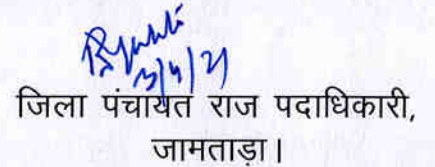 13/4/21
जिला पंचायत राज पदाधिकारी,
जामताड़ा।